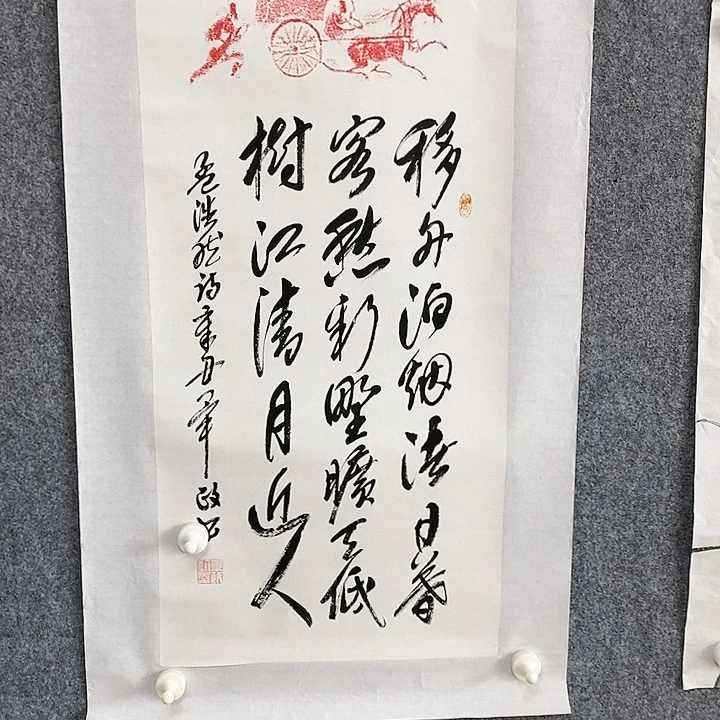 移舟泊烟渚日暮
客愁新野曠天低
樹江清月近人
孟浩然诗